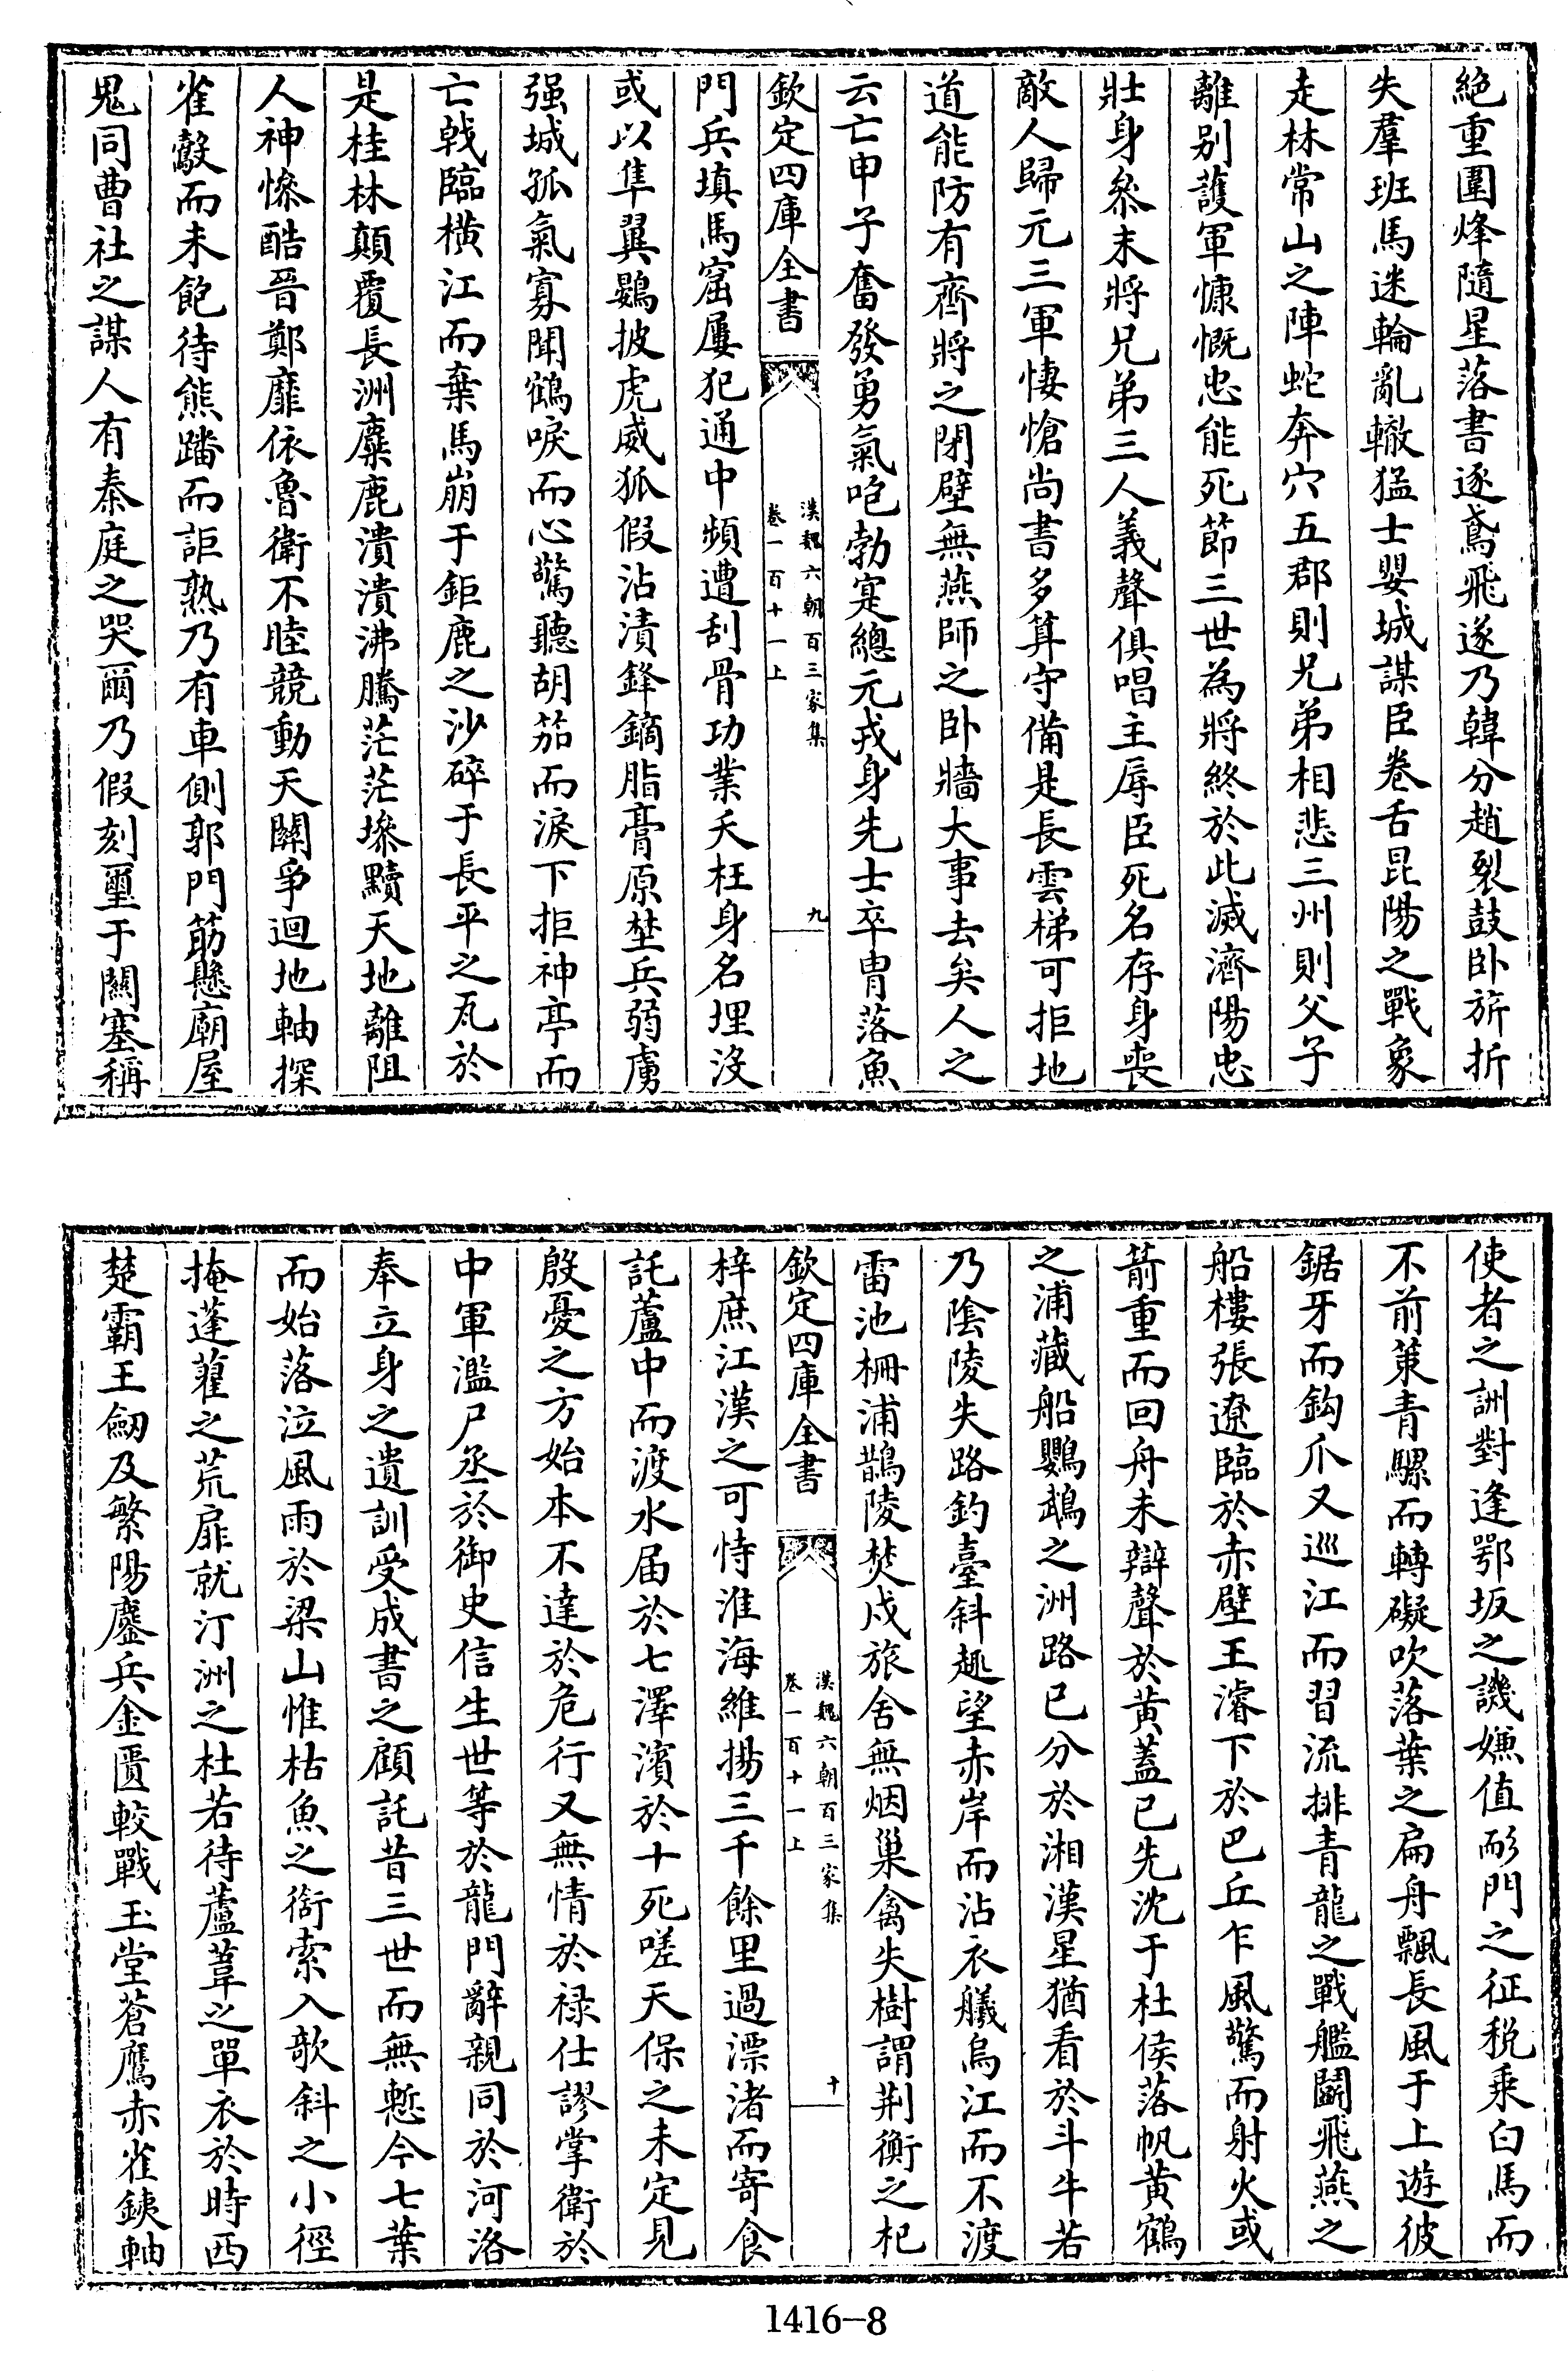 絶重圍烽隨星落書逐鳶飛遂乃韓分趙裂鼓卧旂折
失羣班馬迷輪亂轍猛士嬰城謀臣卷舌昆陽之戰象
走林常山之陣蛇奔穴五郡則兄弟相悲三州則父子
離别護軍慷慨忠能死節三世為將終於此滅濟陽忠
壯身叅末將兄弟三人義聲俱唱主辱臣死名存身喪
敵人歸元三軍悽愴尚書多算守備是長雲梯可拒地
道能防有齊將之閉壁無燕師之卧牆大事去矣人之
云亡申子奮發勇氣咆勃寔總元戎身先士卒胄落魚
欽定四庫全書
漢魏六朝百三家集
卷一百十一上
九
門兵填馬窟屢犯通中頻遭刮骨功業夭枉身名埋没
或以隼翼鷃披虎威狐假沾漬鋒鏑脂膏原埜兵弱虜
强城孤氣寡聞鶴唳而心驚聽胡笳而淚下拒神亭而
亡戟臨橫江而棄馬崩于鉅鹿之沙碎于長平之瓦於
是桂林顛覆長洲麋鹿潰潰沸騰茫茫墋黷天地離阻
人神慘酷晉鄭靡依魯衛不睦競動天關爭迴地軸探
雀鷇而未飽待熊蹯而詎熟乃有車側郭門筋懸廟屋
鬼同曹社之謀人有秦庭之哭爾乃假刻璽于關塞稱
使者之詶對逢鄂坂之譏嫌值耏門之征稅乘白馬而
不前策青騾而轉礙吹落葉之扁舟飄長風于上遊彼
鋸牙而鈎爪又巡江而習流排青龍之戰艦鬭飛燕之
船樓張遼臨於赤壁王濬下於巴丘乍風驚而射火或
箭重而回舟未辯聲於黃蓋已先沈于杜侯落帆黃鶴
之浦藏船鸚鵡之洲路已分於湘漢星猶看於斗牛若
乃陰陵失路釣臺斜趣望赤岸而沾衣艤烏江而不渡
雷池柵浦鵲陵焚戍旅舍無烟巢禽失樹謂荆衡之杞
欽定四庫全書
漢魏六朝百三家集
卷一百十一上
十
梓庶江漢之可恃淮海維揚三千餘里過漂渚而寄食
託蘆中而渡水届於七澤濱於十死嗟天保之未定見
殷憂之方始本不達於危行又無情於禄仕謬掌衛於
中軍濫尸丞於御史信生世等於龍門辭親同於河洛
奉立身之遺訓受成書之顧託昔三世而無慙今七葉
而始落泣風雨於梁山惟枯魚之銜索入欹斜之小徑
掩蓬藋之荒扉就汀洲之杜若待蘆葦之單衣於時西
楚霸王劒及繁陽鏖兵金匱較戰玉堂蒼鷹赤雀鐵軸
1416-8